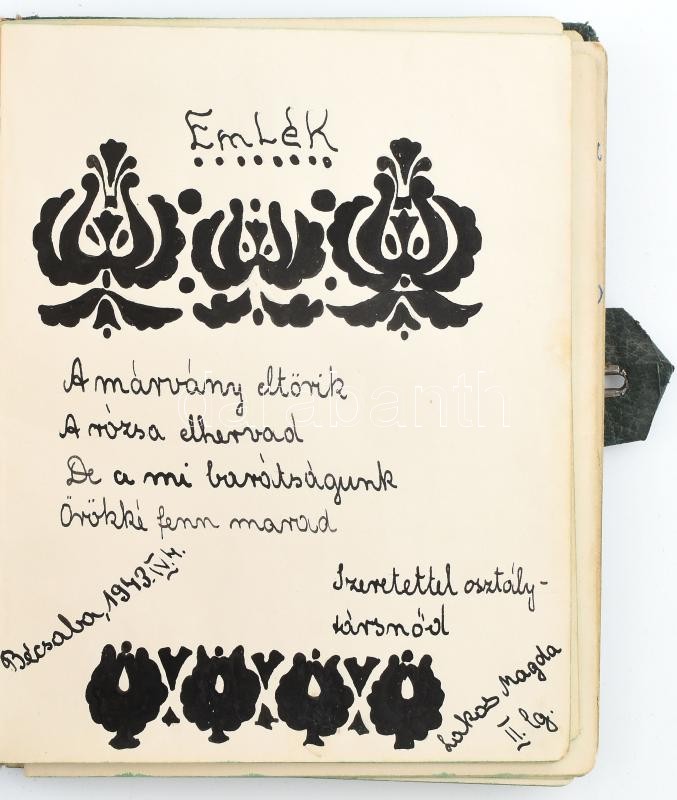 Emlék
A márvány eltörik
A rózsa elhervad
De a mi barátságunk
Örökké fenn marad
Szeretettel osztály-
társnőd
Bécsaba, 1943. IV. 4.
Lakos Magda
II. lg.
darabanth